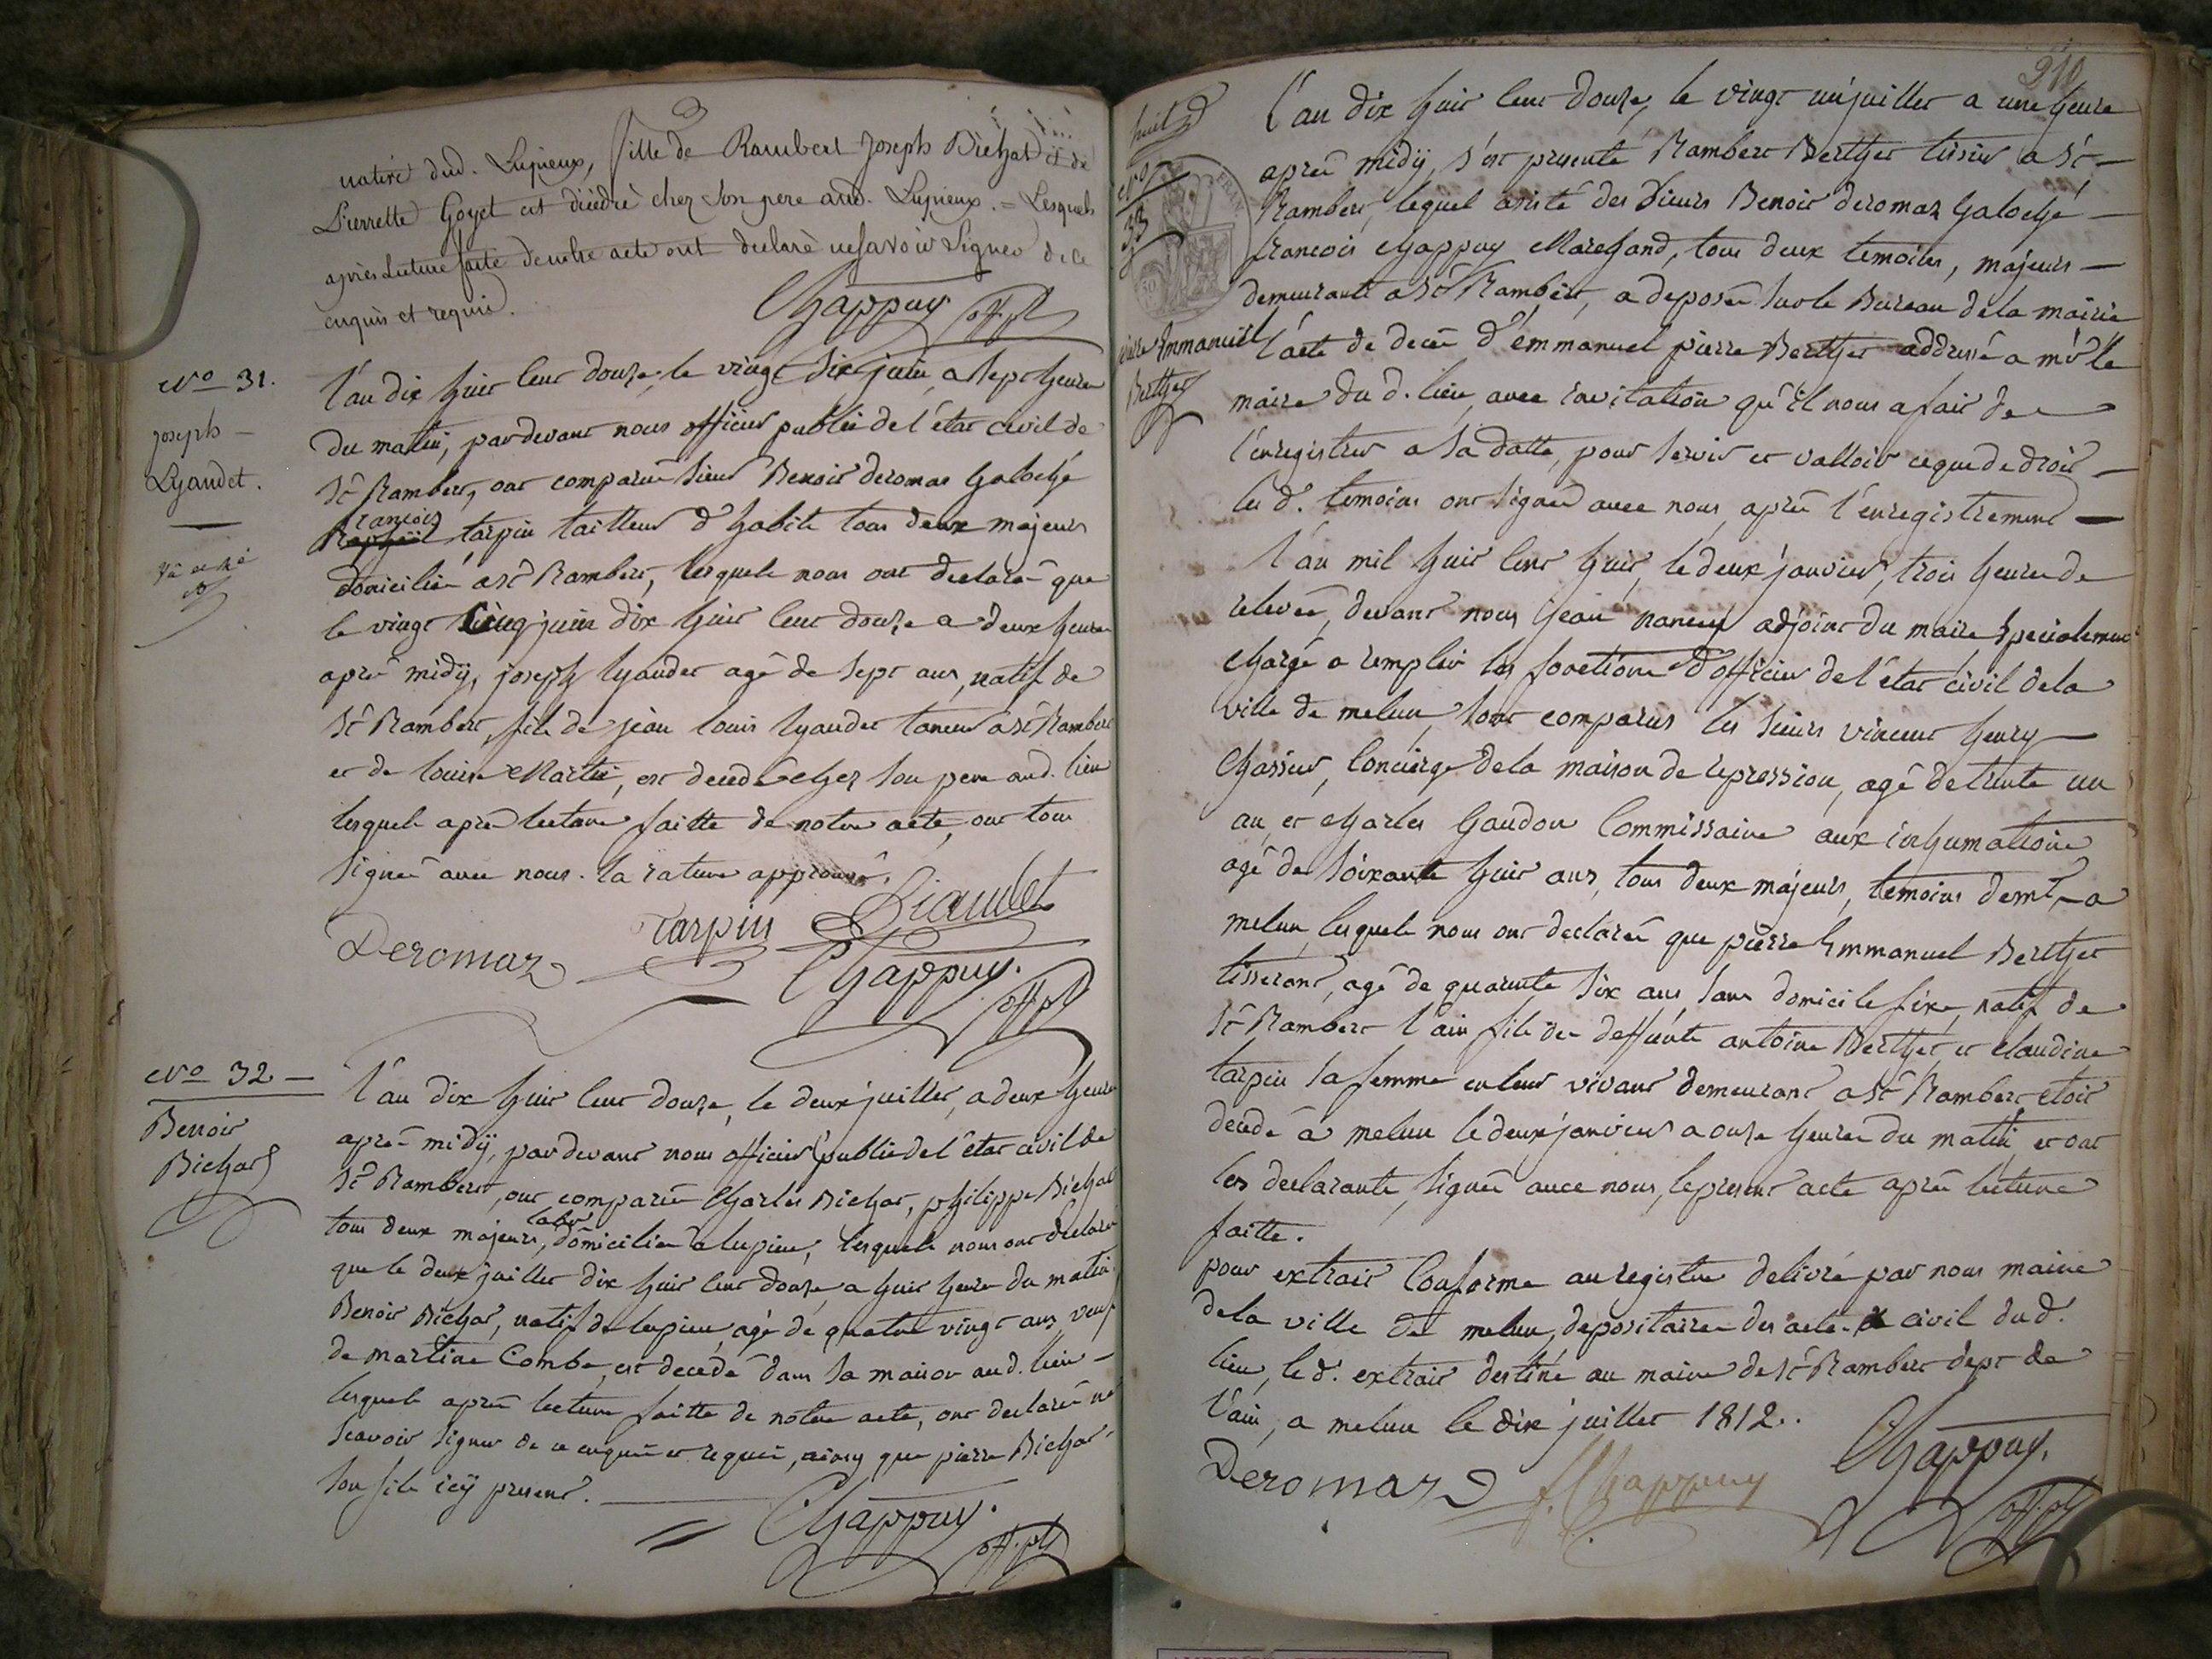 native dud. Lupieux, fille de Rambert Joseph Bichat et de
Pierrette Goyet est décédé chez son pere aud. Lupieux. = Lesquels
après lecture faite de notre acte ont declaré ne savoir signer de ce
enquis et requis.
Chappuy off. pb
No 31.
joseph
Lyaudet.
l'an dix huit cent douze, le vingt six juin, a sept heure
du matin, pardevant nous officier public de l'état civil de
St Rambert, ont comparu sieur Benoit deromas Galoché
françois
Raphaël tarpin tailleur d'habits tous deux majeurs
domicilié a st Rambert, lesquels nous ont declaré que
le vingt cinq juin dix huit cent douze a deux heure
après midÿ, joseph lyaudet agé de sept ans, natif de
St Rambert, fils de jean louis lyaudet taneur a st Rambert
et de louise Martin, est decedé chez son pere aud. lieu
lesquels après lecture faitte de notre acte, ont tous
signé avec nous. la rature approuvé.
Deromaz Tarpin Liaudet
Chappuy. off. pb
No 32
Benoit
Bichat
l'an dix huit cent douze, le deux juillet, a deux heure
après midÿ, pardevant nous officier public de l'état civil de
St Rambert, ont comparu Charles Bichat, philippe Bichat
labr
tous deux majeurs, domicilié a lupieu, lesquels nous ont declaré
que le deux juillet dix huit cent douze a huit heure du matin
Benoit Bichat, natif de lupieu, agé de quatre vingt ans, veuf
de martine Combe, est decedé dans sa maison aud. lieu
lesquels après lecture faitte de notre acte, ont declaré ne
scavoir signer de ce enquis et requis, ainsy que pierre Bichat
son fils icÿ present.
Chappuy. off. pb
210
huit
No
33
pierre Emmanuel
Berthet
l'an dix huit cent douze, le vingt un juillet a une heure
après midÿ, s'est presenté Rambert Berthet tissier a St
Rambert, lequel assisté des sieurs Benoit deromaz Galoché
francois chappuy Marchand, tous deux temoins, majeurs
demeurants a St Rambert, a deposé sur le Bureau de la mairie
l'acte de decès d'emmanuel pierre Berthet addressé a mr le
maire du d. lieu, avec invitation qu'il nous a fait de
l'enregistrer a sa datte, pour servir et valloir ce que de droit
les d. temoins ont signé avec nous après l'enregistrement
l'an mil huit cent huit, le deux janvier, trois heures de
relevée, devant nous jean nancey adjoint du maire, specialement
chargé a remplir les fonctions d'officier de l'état civil de la
ville de melun, sont comparus les sieurs vincent henry
Chassier, concierge de la maison de repression, agé de trente un
an, et charles Gaudon Commissaire aux inhumations
agé de soixante huit ans, tous deux majeurs, temoins demt a
melun, lesquels nous ont declaré que pierre Emmanuel Berthet
tisserant, agé de quarante six ans, sans domicile fixe, natif de
St Rambert l'ain fils de deffunts antoine Berthet et claudine
tarpin sa femme en leur vivant demeurant a St Rambert etoit
decedé a melun le deux janvier a onze heures du matin, et ont
les declarants, signé avec nous, le present acte après lecture
faitte.
pour extrait Conforme au registre delivré par nous maire
de la ville de melun, depositaire des actes civil dud.
lieu, le d. extrait destiné au maire de St Rambert dept de
l'ain, a melun le dix juillet 1812.
Deromaz f. Chappuy Chappuy. off. pb